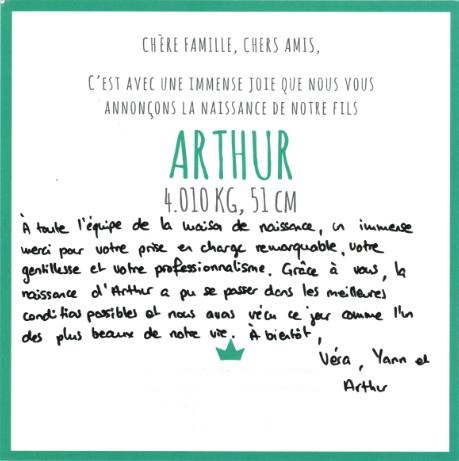 CHÈRE FAMILLE, CHERS AMIS,
C'EST AVEC UNE IMMENSE JOIE QUE NOUS VOUS
ANNONÇONS LA NAISSANCE DE NOTRE FILS
ARTHUR
4.010 KG, 51 CM
À toute l'équipe de la maison de naissance, un immense
merci pour votre prise en charge remarquable, votre
gentillesse et votre professionnalisme. Grâce à vous, la
naissance d'Arthur a pu se passer dans les meilleures
conditions possibles et nous avons vécu ce jour comme l'un
des plus beaux de notre vie. À bientôt,
Véra, Yann et
Arthur